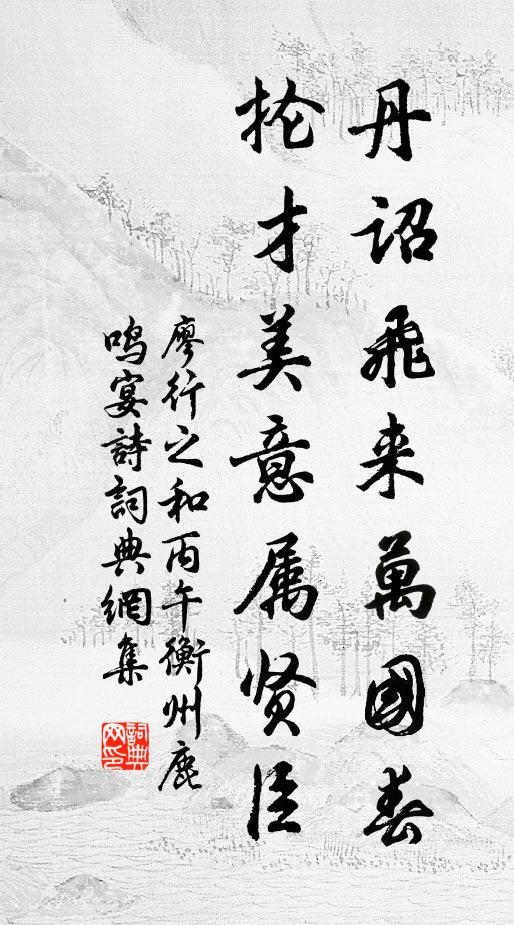 丹詔飛来萬國春
掄才美意属贤臣
廖行之和丙午衡州鹿
鸣宴詩詞典網集
詞典
网印